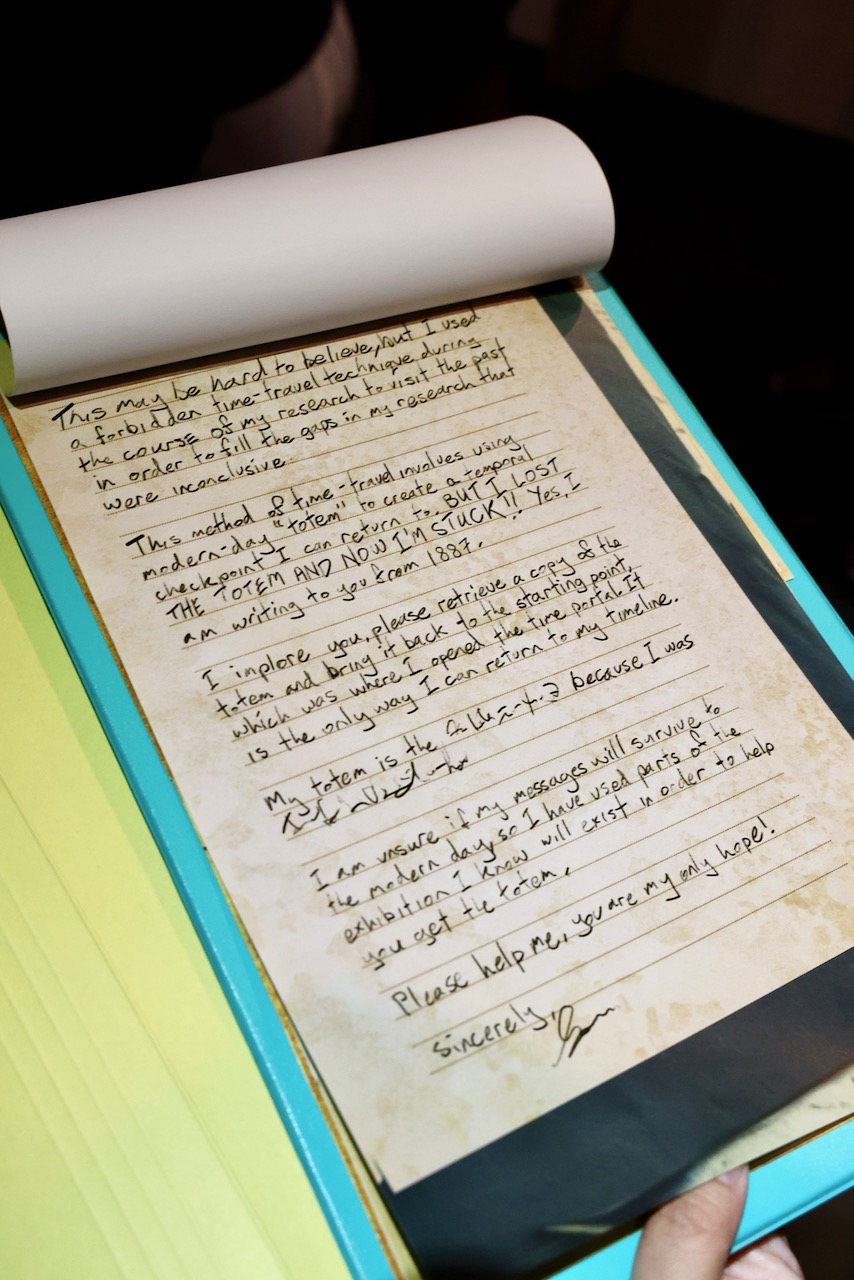 This may be hard to believe, but I used
a forbidden time-travel technique during
the course of my research to visit the past
in order to fill the gaps in my research that
were inconclusive.
This method of time-travel involves using
modern-day "totem" to create a temporal
checkpoint I can return to. BUT I LOST
THE TOTEM AND NOW I'M STUCK!! Yes, I
am writing to you from 1887.
I implore you, please retrieve a copy of the
totem and bring it back to the starting point,
which was where I opened the time portal. It
is the only way I can return to my timeline.
My totem is the because I was
I am unsure if my messages will survive to
the modern day, so I have used parts of the
exhibition I know will exist in order to help
you get the totem.
Please help me, you are my only hope!
sincerely,